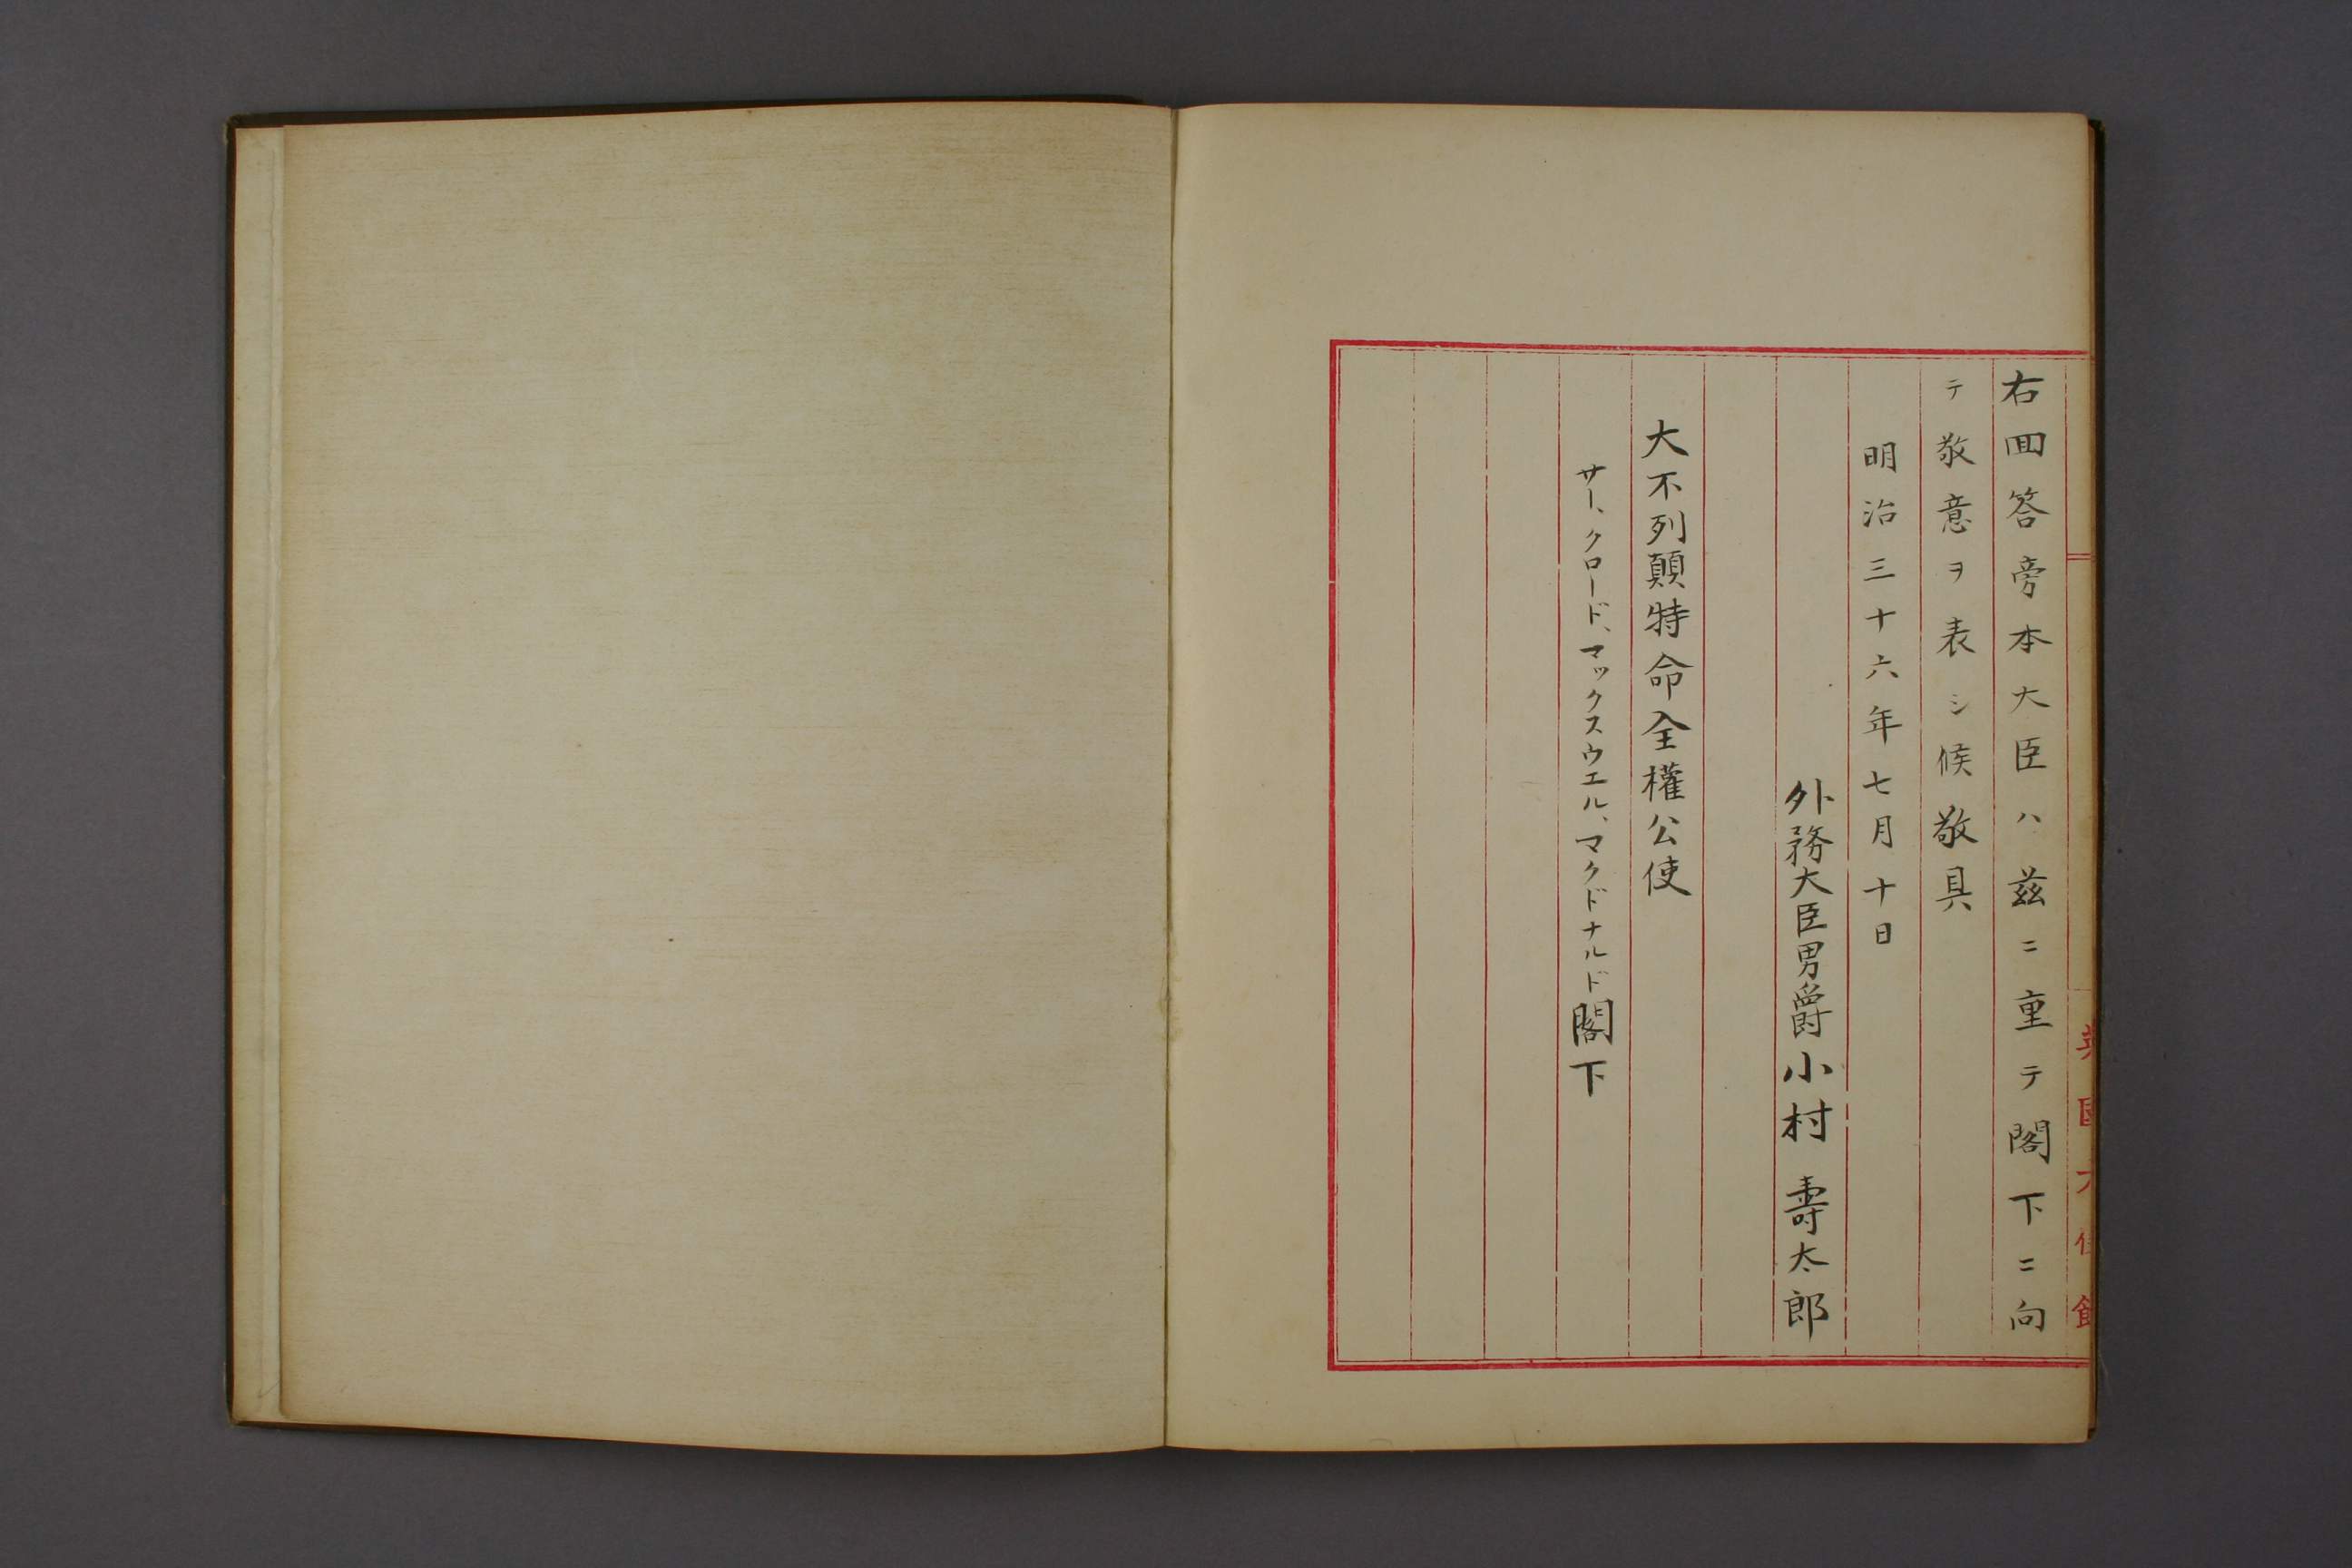 右回答旁本大臣ハ茲ニ重テ閣下ニ向
テ敬意ヲ表シ候敬具
明治三十六年七月十日
外務大臣男爵小村壽太郎
大不列顛特命全權公使
サー、クロード、マックスウエル、マクドナルド閣下